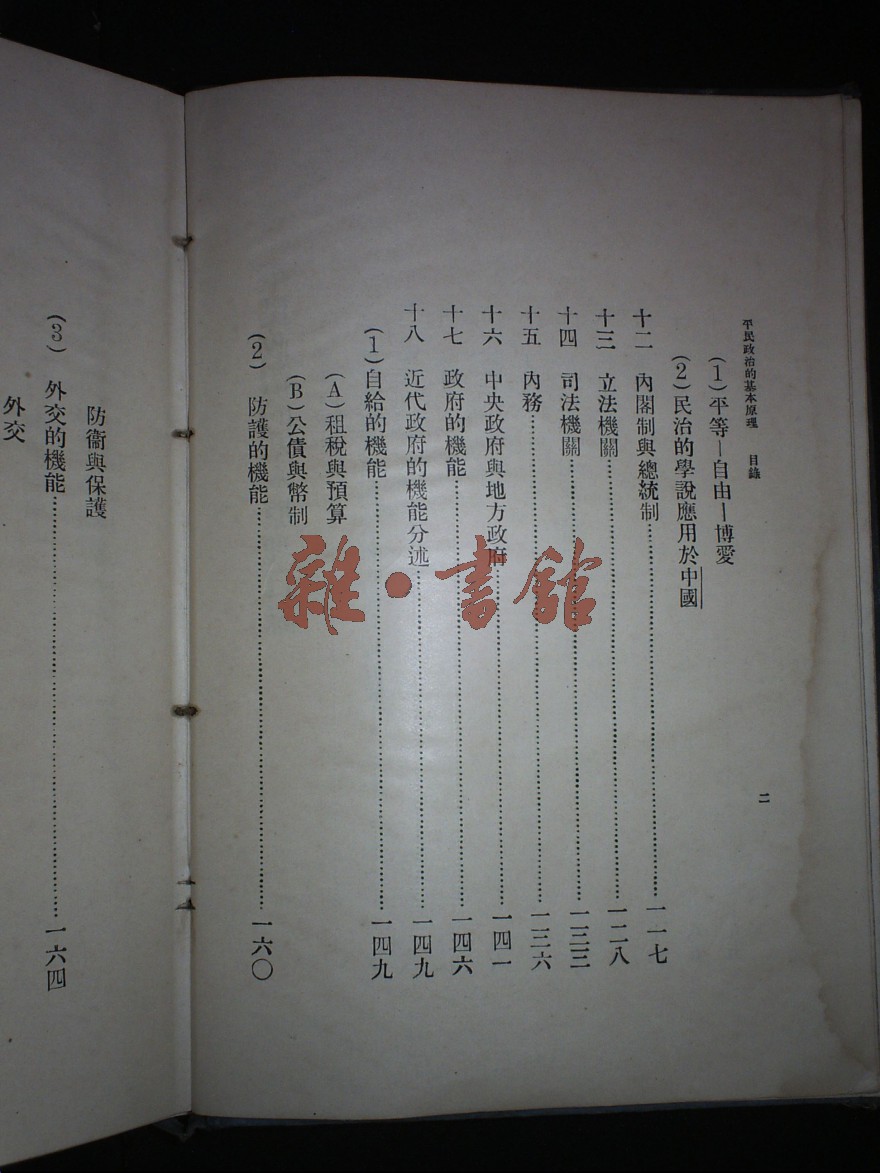 平民政治的基本原理 目錄
二
(1)平等—自由—博愛
(2)民治的學說應用於中國
十二 內閣制與總統制……一一七
十三 立法機關……一二八
十四 司法機關……一三三
十五 內務……一三六
十六 中央政府與地方政府……一四一
十七 政府的機能……一四六
十八 近代政府的機能分述……一四九
(1)自給的機能……一四九
(A)租稅與預算
(B)公債與幣制
(2) 防護的機能……一六〇
防衞與保護
(3) 外交的機能……一六四
外交
雜·書館